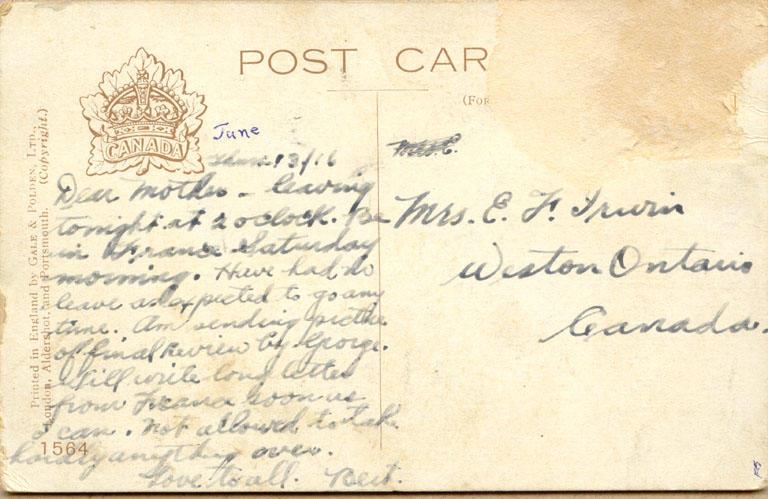 POST CAR
(For
CANADA
Printed in England by GALE & POLDEN, LTD.,
London, Aldershot, and Portsmouth. (Copyright.)
June
13/16
Dear Mother - Leaving
tonight at 2 oclock. Be
in France Saturday
morning. Have had no
leave as expected to go any
time. Am sending picture
of final Review by George.
Will write long letter
from France soon as
I can. Not allowed to take
hardly anything over.
Love to all. Bert.
1564
Mrs. E.
Mrs. E. F. Irwin
Weston Ontario
Canada.